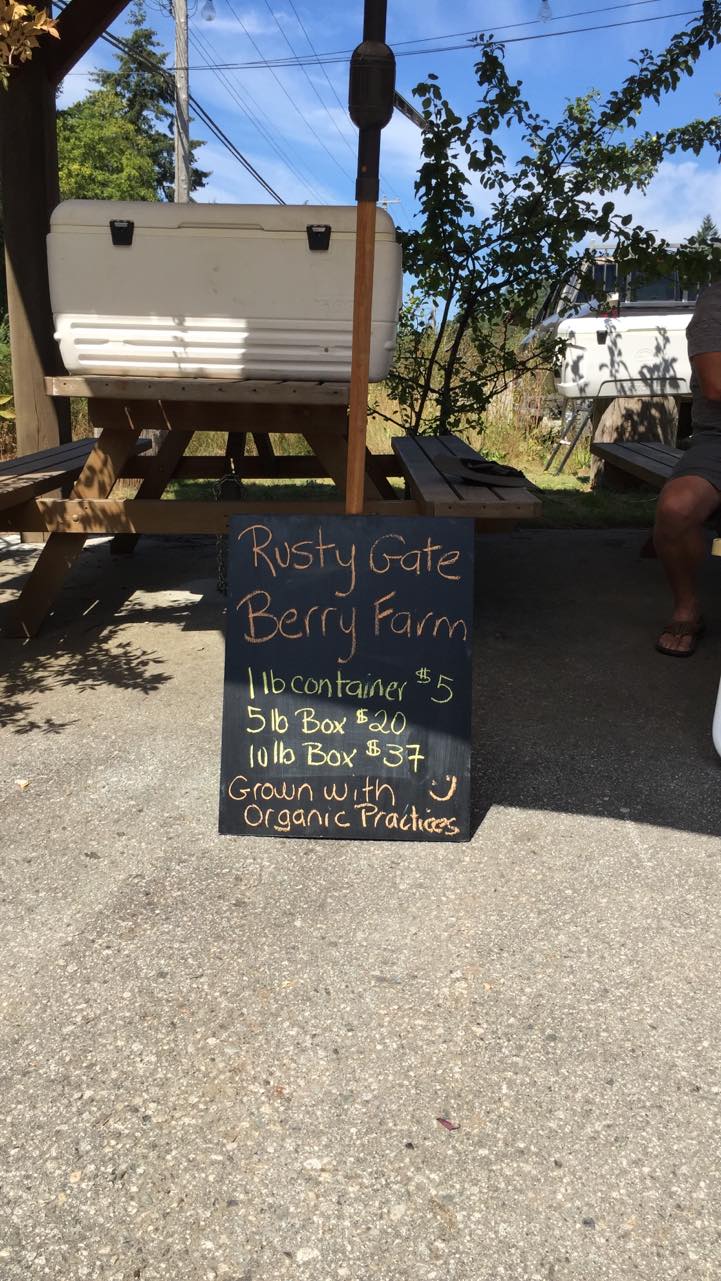 Rusty Gate
Berry Farm
1 lb container $5
5 lb Box $20
10 lb Box $37
Grown with
Organic Practices